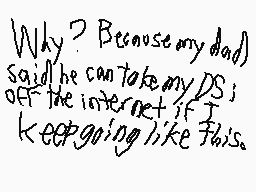 Why? Because my dad
said he can take my DSi
off the internet if I
keep going like this.